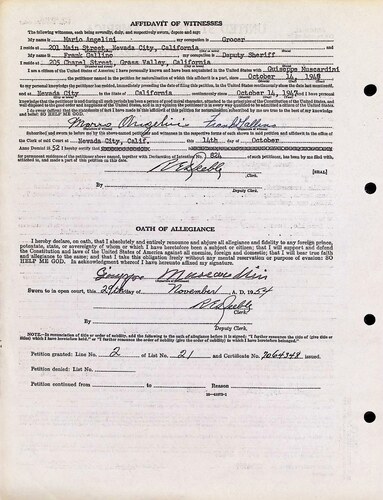 AFFIDAVIT OF WITNESSES
The following witnesses, each being severally, duly, and respectively sworn, depose and say:
My name is Mario Angelini, my occupation is Grocer
I reside at 201 Main Street, Nevada City, California and
My name is Frank Gallino, my occupation is Deputy Sheriff
I reside at 205 Chapel Street, Grass Valley, California
I am a citizen of the United States of America; I have personally known and have been acquainted in the United States with Guiseppe Muscardini
the petitioner named in the petition for naturalization of which this affidavit is a part, since October 14, 1948
to my personal knowledge the petitioner has resided, immediately preceding the date of filing this petition, in the United States continuously since the date last mentioned,
and at Nevada City in the State of California continuously since October 14, 1947 and I have personal
knowledge that the petitioner is and during all such periods has been a person of good moral character, attached to the principles of the Constitution of the United States, and
well disposed to the good order and happiness of the United States, and in my opinion the petitioner is in every way qualified to be admitted a citizen of the United States.
and belief: SO HELP ME GOD.
Subscribed and sworn to before me by the above-named petitioner and witnesses in the respective forms of oath shown in said petition and affidavit in the office of
the Clerk of said Court at Nevada City, Calif. this 14th day of October
Anno Domini 1952 I hereby certify that
for permanent residence of the petitioner above named, together with Declaration of Intention No. 824 of such petitioner, has been by me filed with,
attached to, and made a part of this petition on this date.
Clerk. [SEAL]
By
Deputy Clerk.
OATH OF ALLEGIANCE
I hereby declare, on oath, that I absolutely and entirely renounce and abjure all allegiance and fidelity to any foreign prince,
potentate, state, or sovereignty of whom or which I have heretofore been a subject or citizen; that I will support and defend
the Constitution and laws of the United States of America against all enemies, foreign and domestic; that I will bear true faith
and allegiance to the same; and that I take this obligation freely without any mental reservation or purpose of evasion: SO
HELP ME GOD. In acknowledgment whereof I have hereunto affixed my signature.
Giuseppe Muscardini
Sworn to in open court, this 29th day of November A. D. 1954
Clerk.
By
Deputy Clerk.
NOTE.—In renunciation of title or order of nobility, add the following to the oath of allegiance before it is signed: "I further renounce the title of (give title or
titles) which I have heretofore held," or "I further renounce the order of nobility (give the order of nobility) to which I have heretofore belonged."
Petition granted: Line No. 2 of List No. 21 and Certificate No. 7064348 issued.
Petition denied: List No.
Petition continued from to Reason